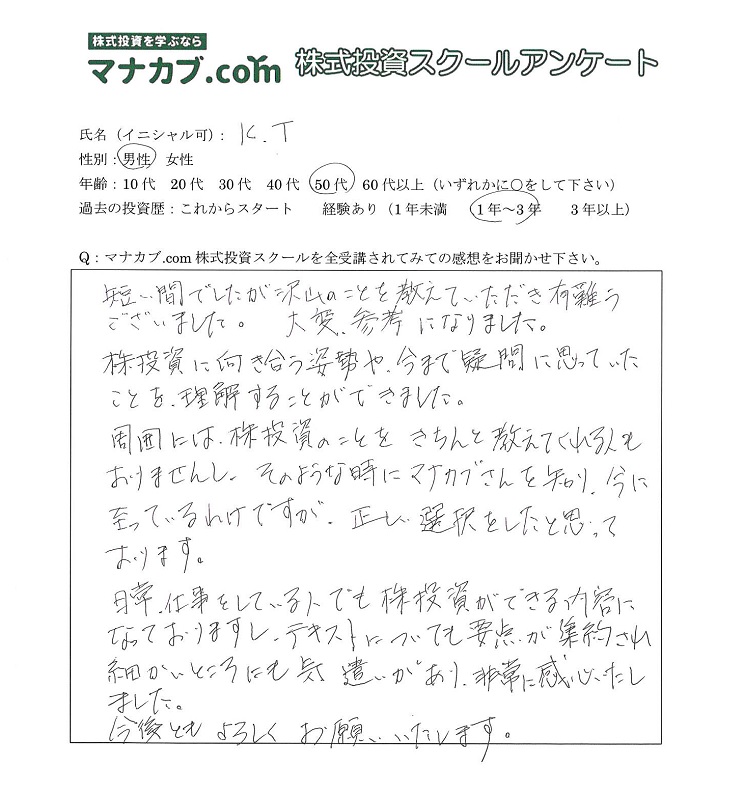 株式投資を学ぶなら
マナカブ.com 株式投資スクールアンケート
氏名（イニシャル可）： K.T
性別：男性 女性
年齢：10代 20代 30代 40代 50代 60代以上（いずれかに○をして下さい）
過去の投資歴：これからスタート 経験あり（1年未満 1年～3年 3年以上）
Q：マナカブ.com 株式投資スクールを全受講されてみての感想をお聞かせ下さい。
短い間でしたが沢山のことを教えていただき有難う
ございました。 大変、参考になりました。
株投資に向き合う姿勢や、今まで疑問に思っていた
ことを、理解することができました。
周囲には、株投資のことをきちんと教えてくれる人も
おりませんし、そのような時にマナカブさんを知り、今に
至っているわけですが、正しい選択をしたと思って
おります。
日常、仕事をしている人でも株投資ができる内容に
なっておりますし、テキストについても要点が集約され
細かいところにも気遣いがあり、非常に感心いたし
ました。
今後ともよろしくお願いいたします。